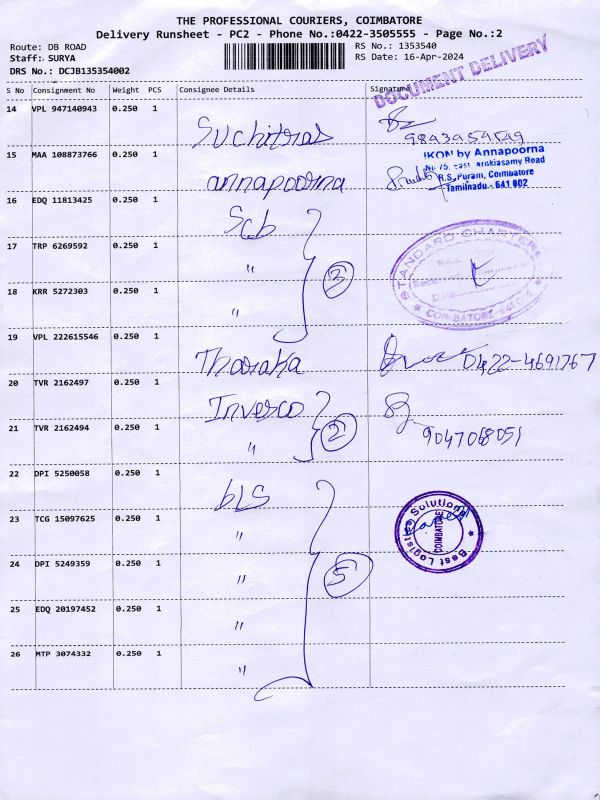 THE PROFESSIONAL COURIERS, COIMBATORE
Delivery Runsheet - PC2 - Phone No.:0422-3505555 - Page No.:2
Route: DB ROAD
Staff: SURYA
DRS No.: DCJB135354002
RS No.: 1353540
RS Date: 16-Apr-2024
DOCUMENT DELIVERY
S No Consignment No Weight PCS Consignee Details Signature
14 VPL 947140943 0.250 1 Suchitras
9843959549
15 MAA 108873766 0.250 1 annapoorna
IKON by Annapoorna
No 75, East Arokiasamy Road
R.S.Puram, Coimbatore
Tamilnadu - 641 002
16 EDQ 11813425 0.250 1 Scb
17 TRP 6269592 0.250 1 "
3
18 KRR 5272303 0.250 1 "
STANDARD CHARTERED
COIMBATORE
19 VPL 222615546 0.250 1 Tharaka
0422-4691767
20 TVR 2162497 0.250 1 Invesco
21 TVR 2162494 0.250 1 "
2
9047068051
22 DPI 5250058 0.250 1 bLS
23 TCG 15097625 0.250 1 "
Best Logistics Solutions
COIMBATORE
24 DPI 5249359 0.250 1 "
5
25 EDQ 20197452 0.250 1 "
26 MTP 3074332 0.250 1 "